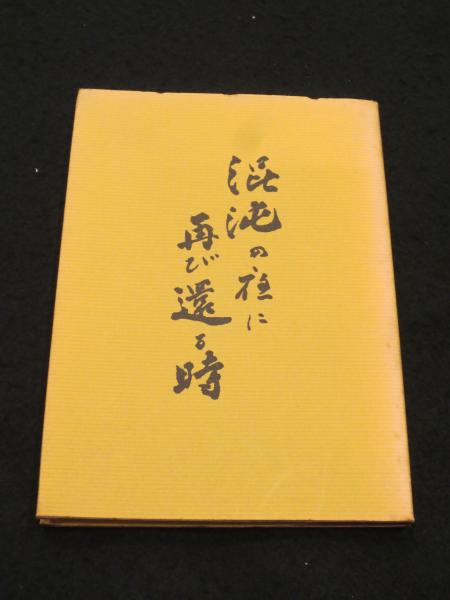 混沌の に
再び還る時